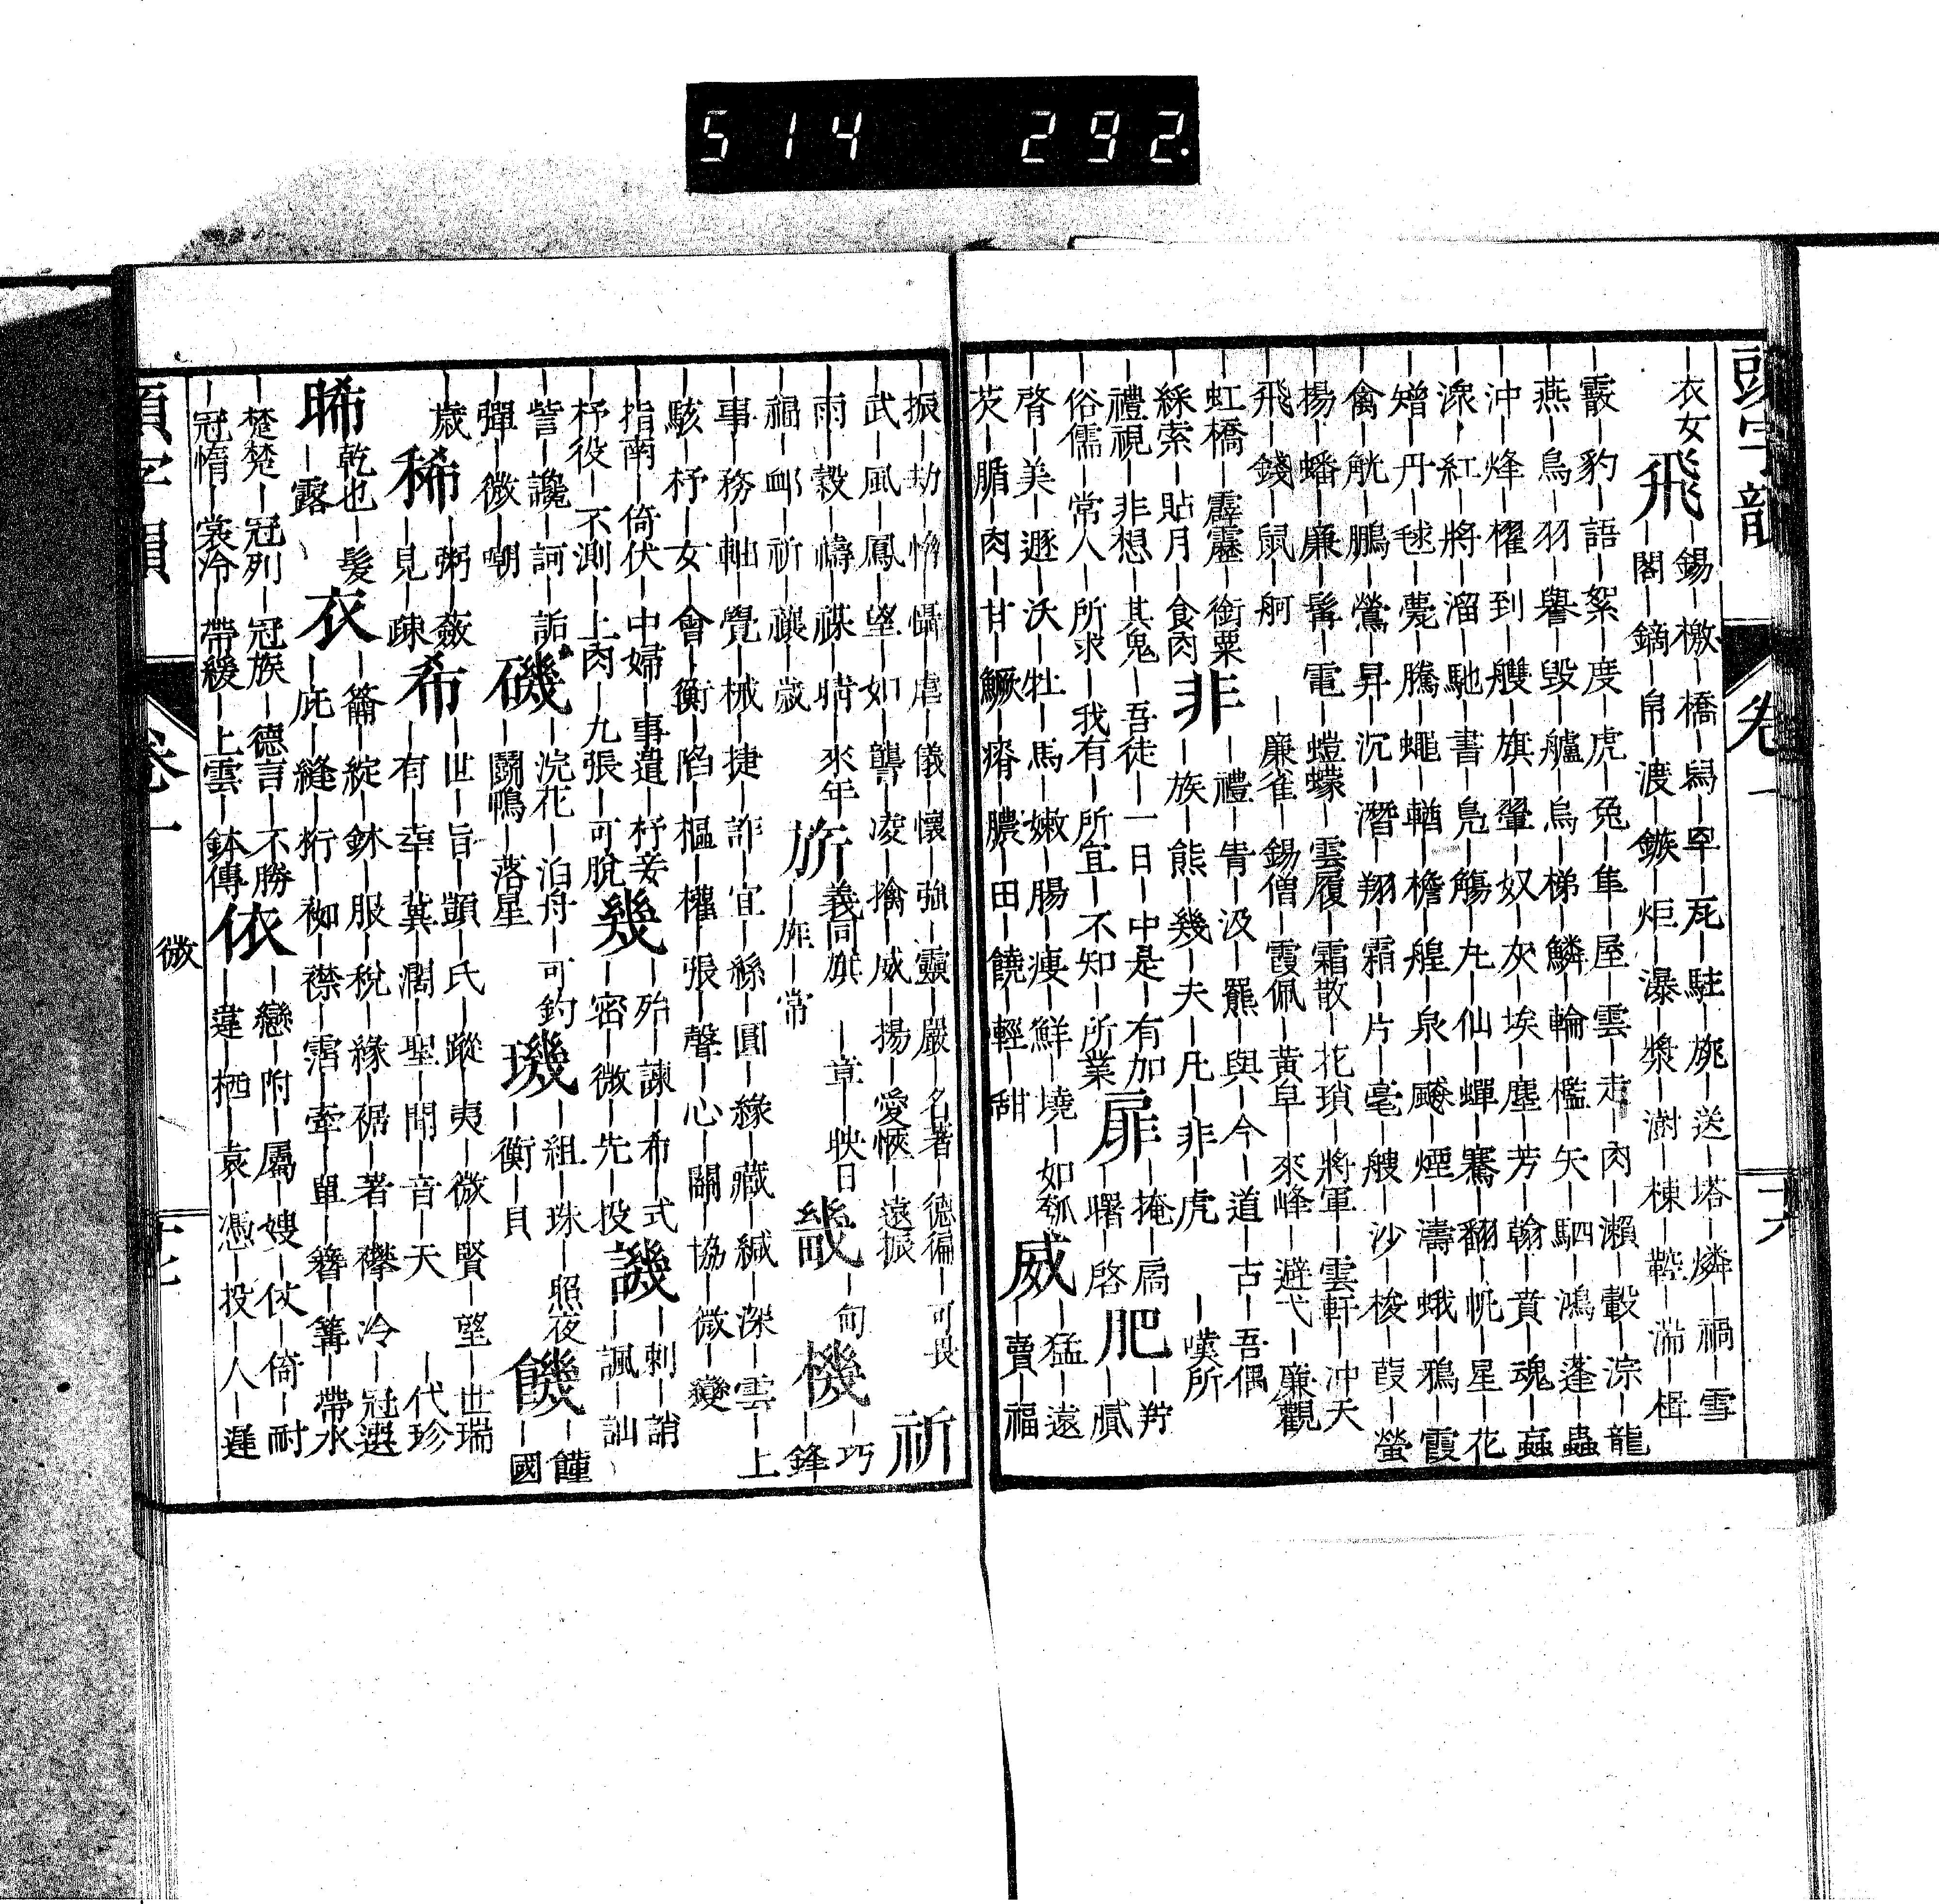 514 292.
頭字韻 卷一 十六
｜衣女
飛｜錫｜檄｜橋｜舄｜罕｜瓦｜駐｜旐｜送｜塔｜燐｜禍｜雪
｜閣｜鏑｜帛｜渡｜鏃｜炬｜瀑｜漿｜澍｜棟｜鞚｜湍｜楫
｜霰｜豹｜語｜絮｜度｜虎｜兔｜隼｜屋｜雲｜走｜肉｜瀨｜轂｜淙｜龍
｜燕｜鳥｜羽｜譽｜毀｜艫｜烏｜梯｜鱗｜輪｜檻｜矢｜駟｜鴻｜蓬｜蟲
｜沖｜烽｜櫂｜到｜艭｜旗｜翬｜奴｜灰｜埃｜塵｜芳｜翰｜賁｜魂｜蝱
｜潨｜紅｜將｜溜｜馳｜書｜鳧｜觴｜丸｜仙｜蟬｜騫｜翻｜帆｜星｜花
｜矰｜丹｜毬｜甍｜騰｜蠅｜輶｜檐｜艎｜泉｜飈｜煙｜濤｜蛾｜鴉｜霞
｜禽｜觥｜鵬｜鶯｜昇｜沉｜潛｜翔｜霜｜片｜毫｜艘｜沙｜梭｜葭｜螢
｜揚｜蟠｜廉｜髯｜電｜螘蠓｜雲履｜霜散｜花瑣｜將軍｜雲軒｜沖天
｜飛｜錢｜鼠｜舸｜廉雀｜錫僧｜霞佩｜黃阜｜來峰｜避弋｜廉觀
｜虹橋｜霹靂｜銜粟
｜綵索｜貼月｜食肉
非｜禮｜眚｜汲｜羆｜與｜今｜道｜古｜吾偶
｜族｜熊｜幾｜夫｜凡｜非｜虎｜嘆所
｜禮視｜非想｜其鬼｜吾徒｜一日｜中是｜有加
｜俗儒｜常人｜所求｜我有｜所宜｜不知｜所業
扉｜掩｜扃
｜曙｜啓
肥｜羜
｜膩
｜臀｜美｜遯｜沃｜牡｜馬｜嫩｜腸｜瘦｜鮮｜墝｜如瓠
｜芡｜腯｜肉｜甘｜鱖｜瘠｜膿｜田｜饒｜輕｜甜
威｜猛｜遠
｜賣｜福
｜振｜劫｜懾｜虐｜儀｜懷｜強｜靈｜嚴｜名著｜德徧｜可畏
｜武｜風｜鳳｜望｜如｜讋｜凌｜擒｜威｜揚｜愛愜｜遠振
祈｜雨｜穀｜禱｜禖｜晴｜來年
｜福｜衈｜祈｜禳｜歲
旂義同旗｜章｜映日
｜旌｜常
畿｜甸
機｜巧
｜鋒
｜事｜務｜軸｜覺｜械｜捷｜詐｜宜｜絲｜圓｜緣｜藏｜緘｜深｜雲｜上
｜駭｜杼｜女｜會｜衡｜陷｜樞｜權｜張｜聲｜心｜關｜協｜微｜變
｜指南｜倚伏｜中婦｜事遺｜杼妾
｜杼役｜不測｜上肉｜九張｜可脫
幾｜殆｜諫｜布｜式
｜密｜微｜先｜投
譏｜刺｜誚
｜諷｜訕
｜訾｜讒｜訶｜詬
｜彈｜微｜嘲
磯｜浣花｜泊舟｜可釣
｜鬭鴨｜落星
璣｜組｜珠｜照夜
｜衡｜貝
饑｜饉
｜國
｜歲
稀｜粥｜蔹
｜見｜疎
希｜世｜旨｜顗｜氏｜蹤｜夷｜微｜賢｜望｜世瑞
｜有｜幸｜冀｜濶｜聖｜聞｜音｜天｜代珍
晞乾也｜髮
｜露
衣｜簫｜綻｜鉢｜服｜稅｜緣｜裾｜著｜襻｜冷｜冠選
｜庇｜縫｜桁｜袽｜襟｜霑｜牽｜單｜簪｜篝｜帶水
｜楚楚｜冠列｜冠族｜德言｜不勝
｜冠惰｜裳冷｜帶緩｜上雲｜鉢傳
依｜戀｜附｜屬｜嫂｜仗｜倚｜耐
｜違｜栖｜哀｜憑｜投｜人｜遲
頭字韻 卷一 微 十七